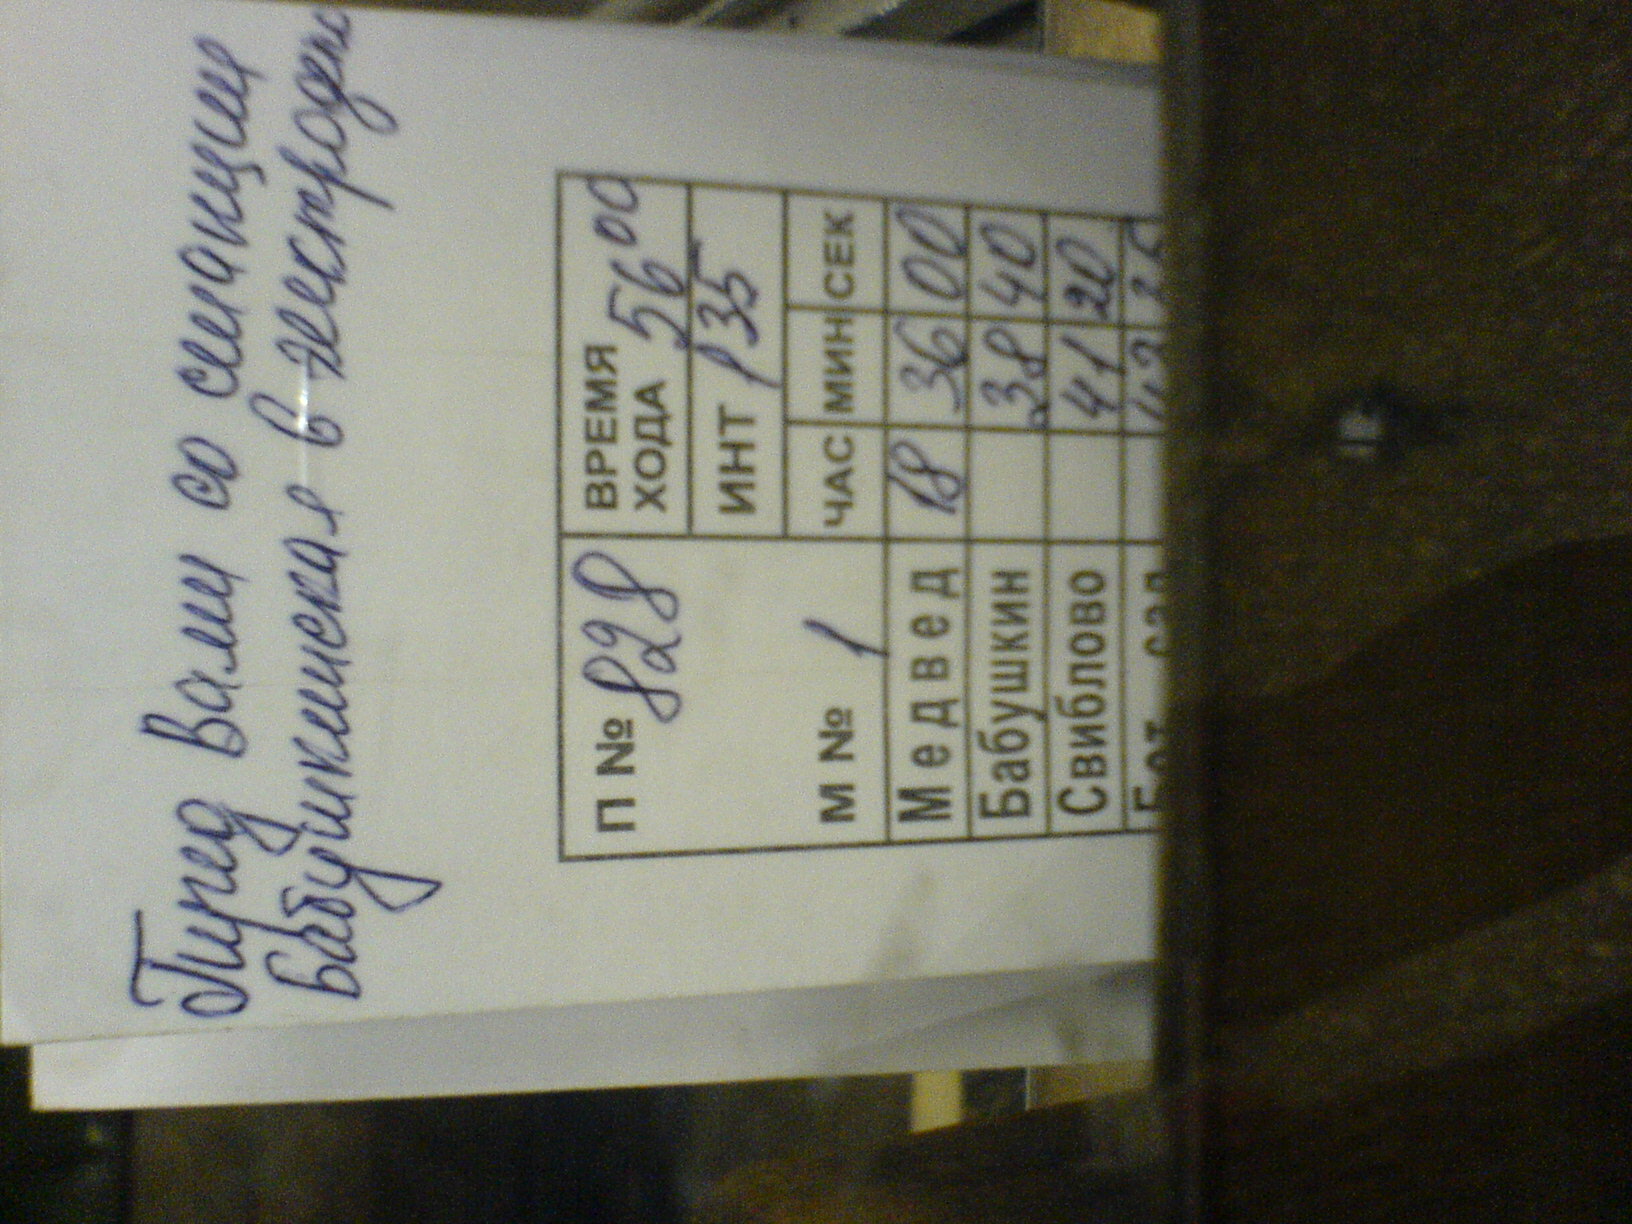 Перед Вами со станции
Бабушкинская в электродепо
П № 828
ВРЕМЯ ХОДА 56 00
ИНТ 1 35
М № 1
ЧАС МИН СЕК
Медвед 18 36 00
Бабушкин 38 40
Свиблово 41 20
Бот сад